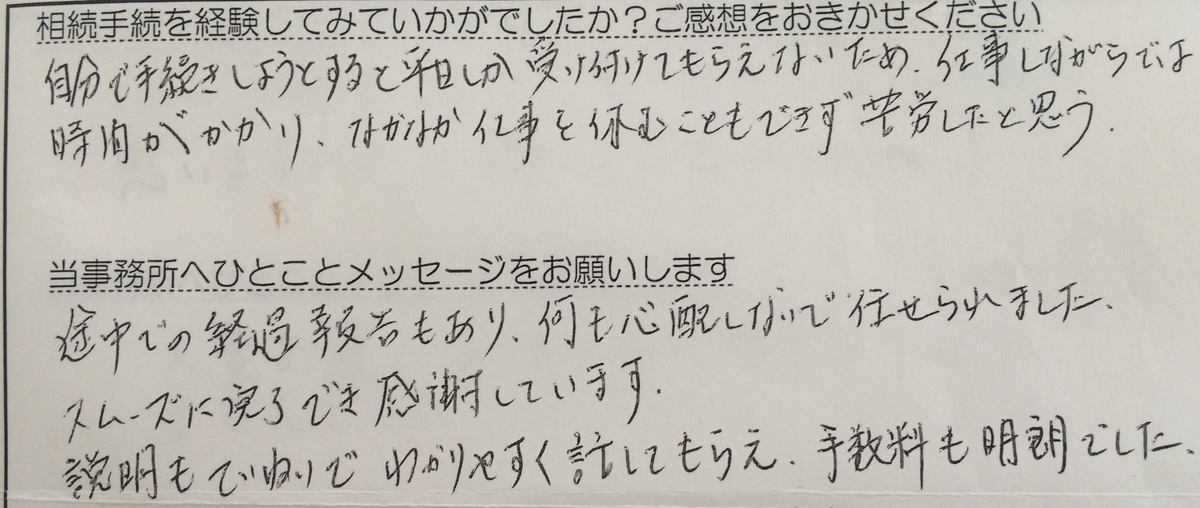 相続手続を経験してみていかがでしたか？ご感想をおきかせください
自分で手続きしようとすると平日しか受け付けてもらえないため、仕事しながらでは
時間がかかり、なかなか仕事を休むこともできず苦労したと思う。
当事務所へひとことメッセージをお願いします
途中での経過報告もあり、何も心配しないで任せられました、
スムーズに完了でき感謝しています。
説明もていねいでわかりやすく話してもらえ、手数料も明朗でした、